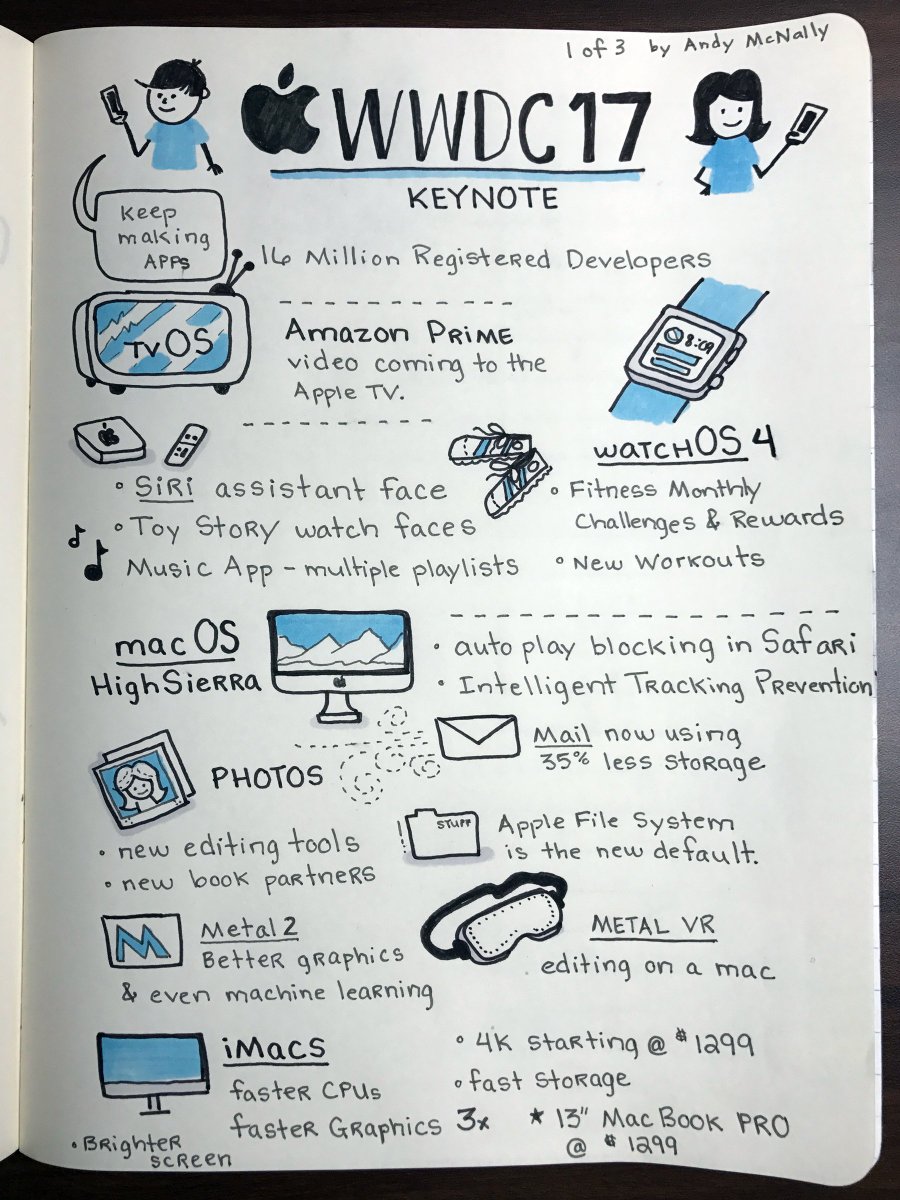 1 of 3 by Andy McNally
WWDC17
KEYNOTE
Keep
making
APPs
16 Million Registered Developers
TVOS
Amazon Prime
video coming to the
Apple TV.
8:09
watchOS 4
• Siri assistant face
• Toy Story watch faces
Music App - multiple playlists
• Fitness Monthly
Challenges & Rewards
• New Workouts
macOS
High Sierra
• auto play blocking in Safari
• Intelligent Tracking Prevention
Mail now using
35% less storage
PHOTOS
• new editing tools
• new book partners
STUFF
Apple File System
is the new default.
M
Metal 2
Better graphics
& even machine learning
METAL VR
editing on a mac
iMacs
faster CPUs
faster Graphics 3x
• Brighter
screen
• 4K starting @ $1299
• fast storage
* 13" MacBook PRO
@ $1299